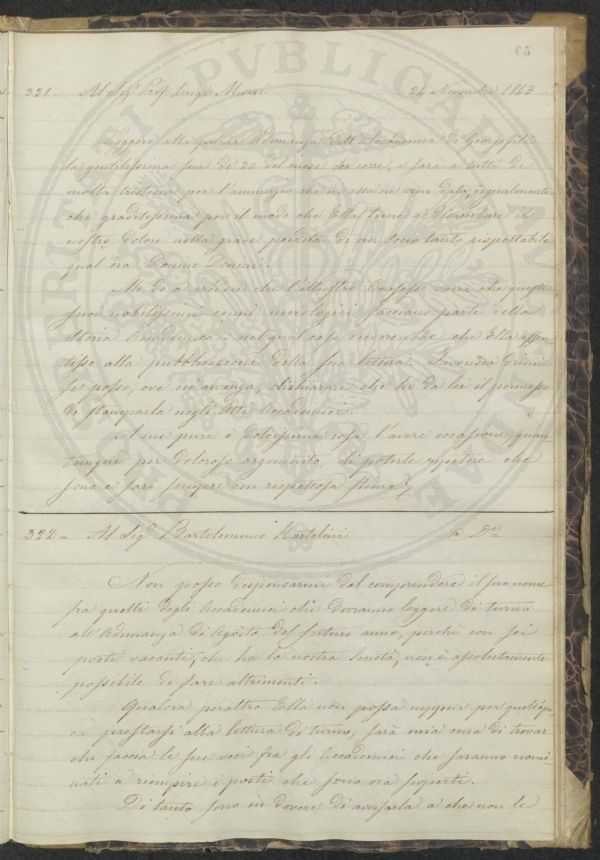 49
321 Al Sig.r Prof. Luigi 24 Novembre 1843
Leggerò alla prima Adunanza dell'Accademia de' Georgofili
la gentilissima sua de' 20 del mese che corre, e sarà a tutti di
molta tristezza per l'annunzio che in essa ne vien dato, egualmente
che graditissima per il modo che Ella tiene di la
nostro dolore nella grave perdita di un Socio tanto rispettabile
qual era
a credere che l'illustre Consesso vorrà che questi
suoi nobilissimi cenni necrologici facciano parte della
Storia Accademica; nel qual caso che Ella assen-
tisse alla pubblicazione della sua lettera. Favorisca dirmi
se posso, ove ciò avvenga, dichiarare che ho da lei il permesso
di stamparla negli Atti Accademici.
A me pure è dolcissima cosa l'avere occasione, quan-
tunque per doloroso argomento, di poterle ripetere che
sono e sarò sempre con rispettosa stima
322 = Al Sig.r Bartolommeo a D.o
Non posso dispensarmi dal comprendere il suo nome
fra quelli degli Accademici che dovranno leggere di turno
all'Adunanza di Agosto del futuro anno, perchè con sei
posti vacanti, che ha la nostra Società, non è assolutamente
possibile di fare altrimenti.
Qualora peraltro Ella non possa neppur per quell'epo-
ca prestarsi alla lettura di turno, sarà mia cura di trovar
chi faccia le sue veci fra gli Accademici che saranno nomi
nati a riempire i posti che sono ora scoperti.
Di tanto sono in dovere di avvisarla a che non le